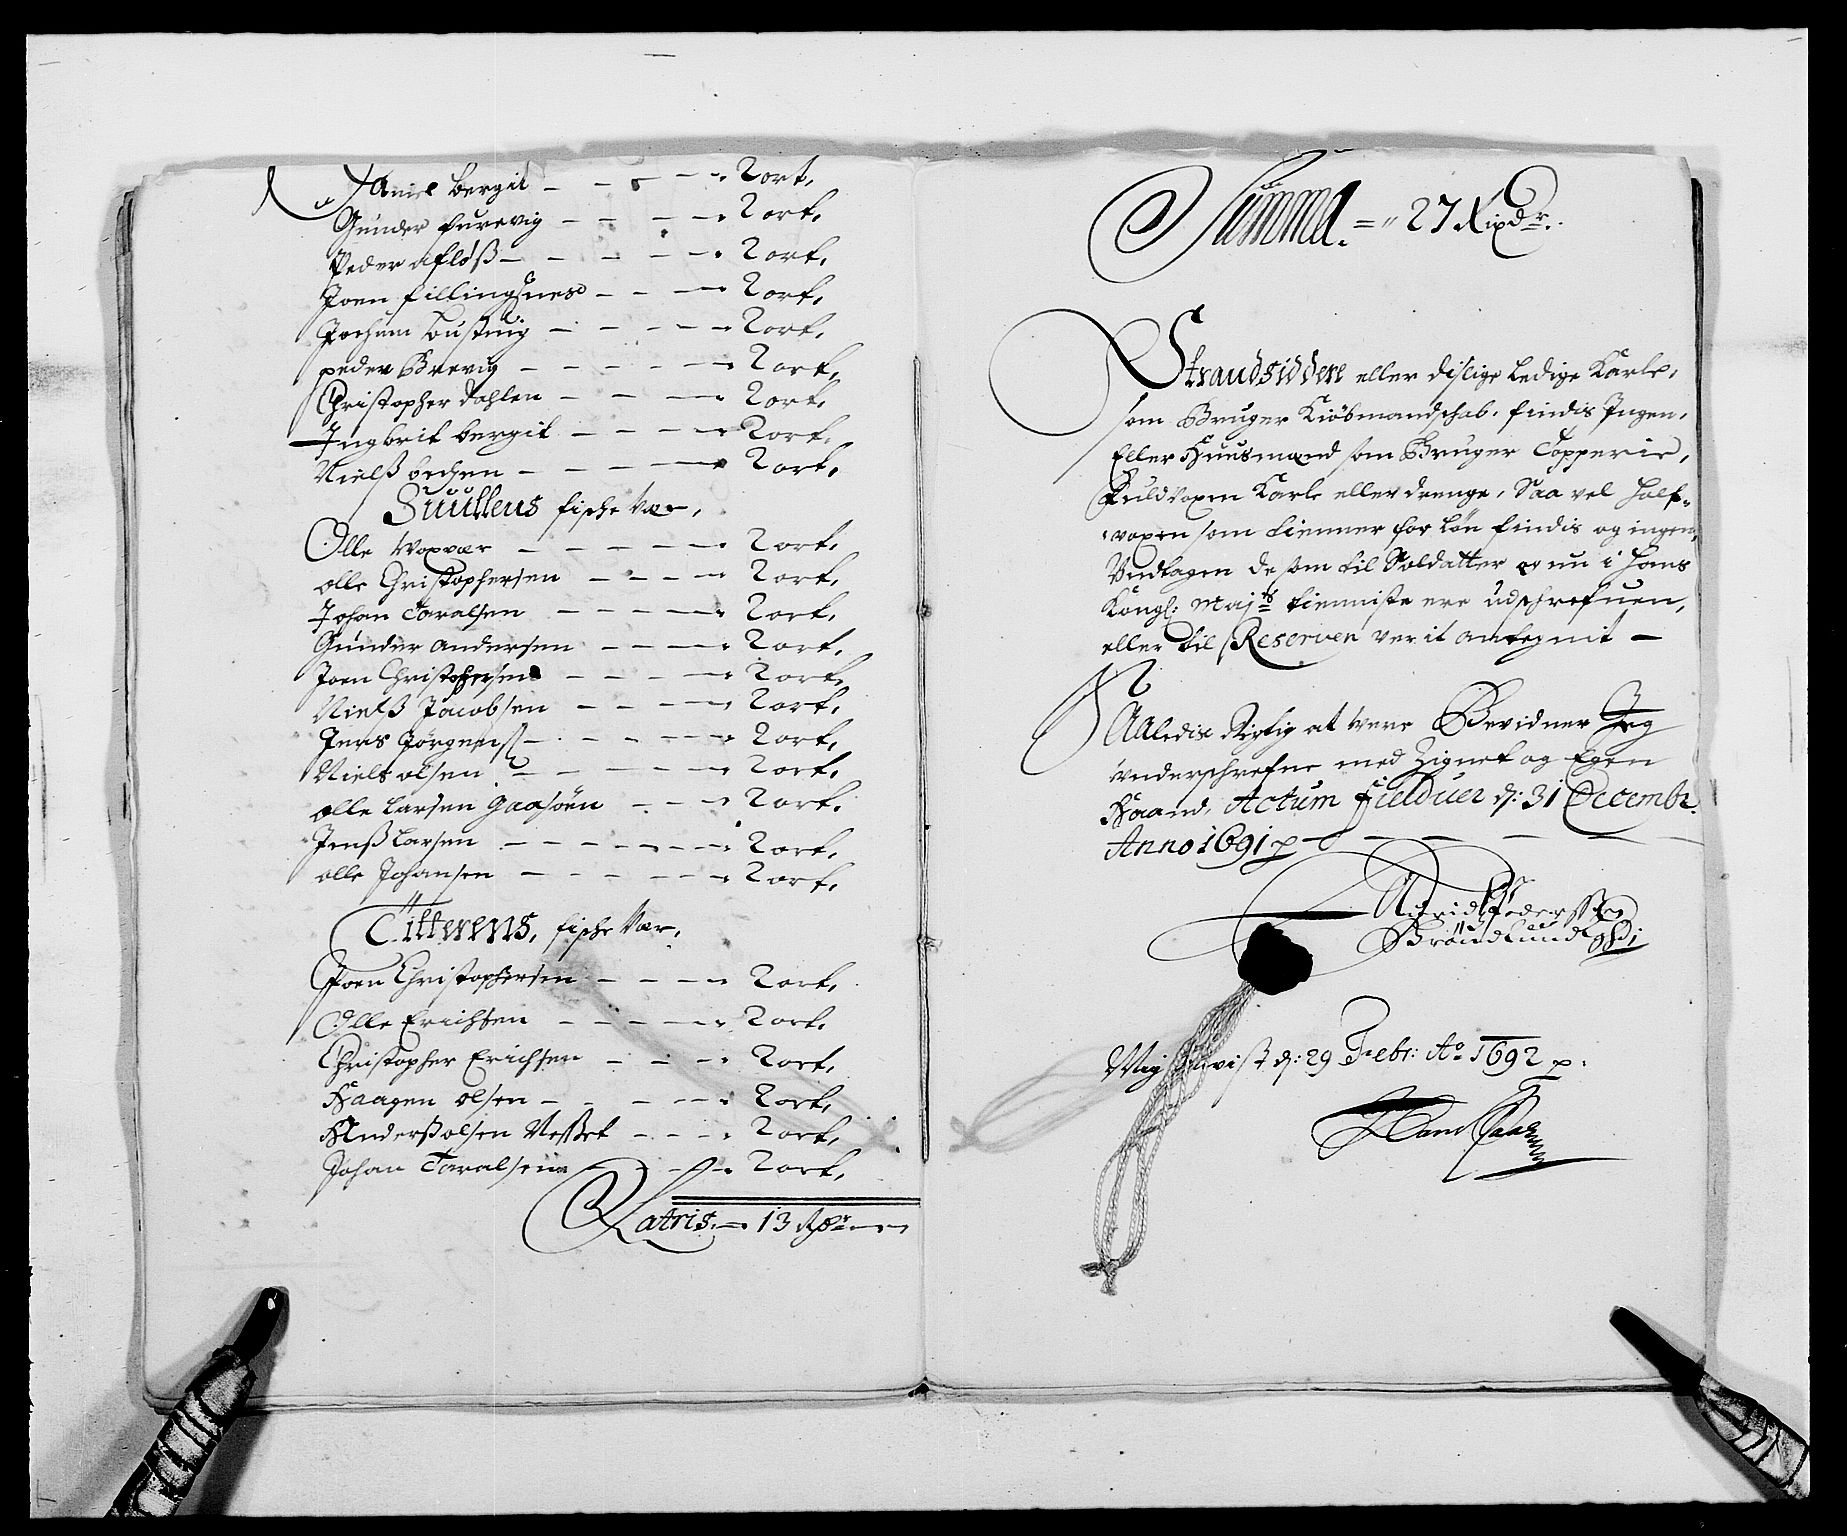 Daniel bergit — — — — 2 ort.
Gunder furevig — — — — 2 ort.
Peder afløß — — — — — 2 ort.
Joen fillingsnes — — — 2 ort.
Jochum bustvig — — — — 2 ort.
peder Brevig — — — — — 2 ort.
Christopher dahlen — — — 2 ort.
Ingbrit bergit — — — — 2 ort.
Nielß bechen — — — — — 2 ort.
Suullens fische vær,
Olle Woxvær — — — — — 2 ort.
olle Christophersen — — — — 2 ort.
Johan Taralsen — — — — — 2 ort.
Gunder andersen — — — — 2 ort.
Joen Christophersen — — — — 2 ort.
Nielß Jacobsen — — — — 2 ort.
Jens Jørgenß — — — — — 2 ort.
Niels olsen — — — — — 2 ort.
olle larsen gaasøen — — — 2 ort.
Jenß larsen — — — — — — 2 ort.
olle Johansen — — — — — 2 ort.
Titterens, fische Vær.
Joen Christophersen — — — — 2 ort.
Olle Erichsen — — — — — 2 ort.
Christopher Erichsen — — — — 2 ort.
Haagen olsen — — — — — 2 ort.
Anderß olsen Neßet — — — — 2 ort.
Johan Taralsen — — — 2 ort.
Latris. — 13 Rdr — —
Summa. = „ 27 Rixdr.
Strandsiddere eller dislige ledige Karle,
som Bruger Kiøbmandschab. findis Ingen,
Eller Huusmænd som Bruger Topperie,
fuldvoxen Karle eller drenge, Saa vel half-
voxen som tienner for løn findis og ingen,
Undtagen de som til Soldatter er nu i Hans
Kongl: Majts tienniste ere udschrefuen,
eller til Reserven verit antegnit —
Saaledis Rigtig at vere Bevidner Jeg
underschrefne med Zignet og Egen
Haand, Actum Fielduer d: 31 Decembr.
Anno 1691 p — — — —
Pedersen
Brøndlund
Mig d: 29 Febr: Ao 1692 p.
Hans